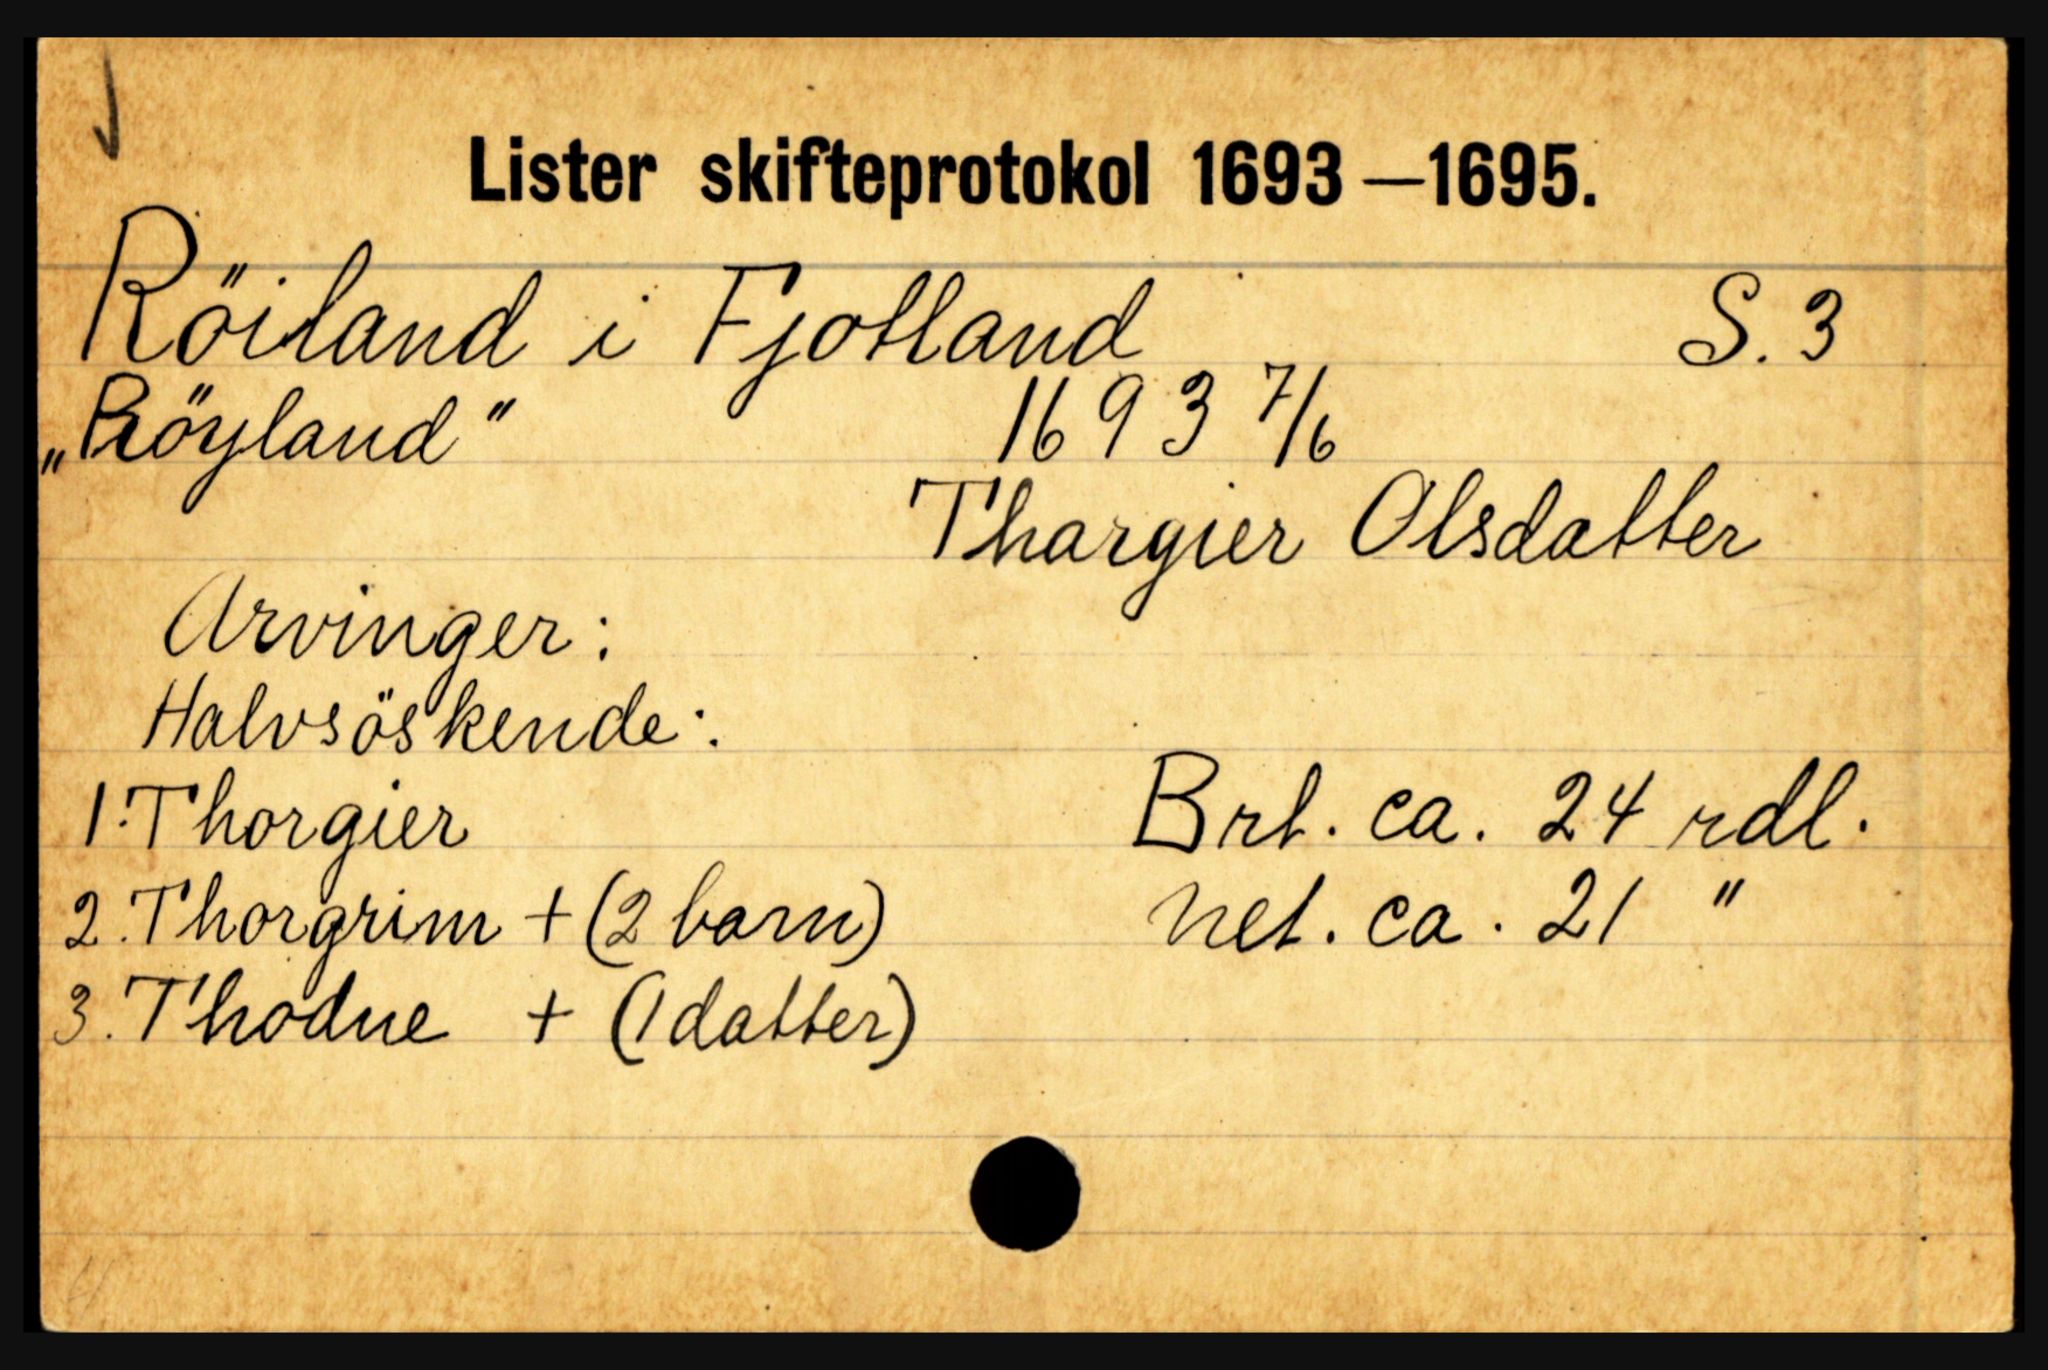 Lister skifteprotokol 1693—1695.
Röiland i Fjotland S. 3
„Röyland" 1693 7/6
Thargier Olsdatter
Arvinger:
Halvsöskende:
1. Thorgier Brt. ca. 24 rdl.
2. Thorgrim + (2 barn) net. ca. 21 "
3. Thodne + (1 datter)